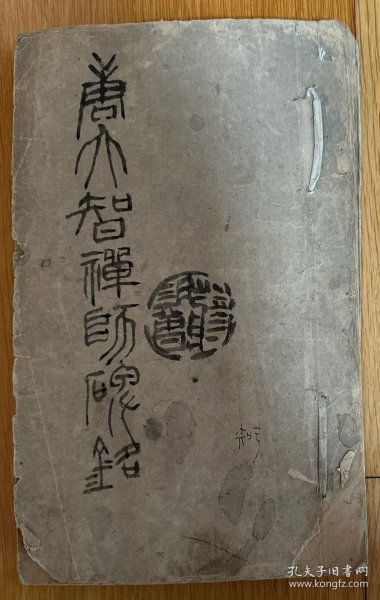 唐大智禪師碑銘
孔夫子旧书网
www.kongfz.com